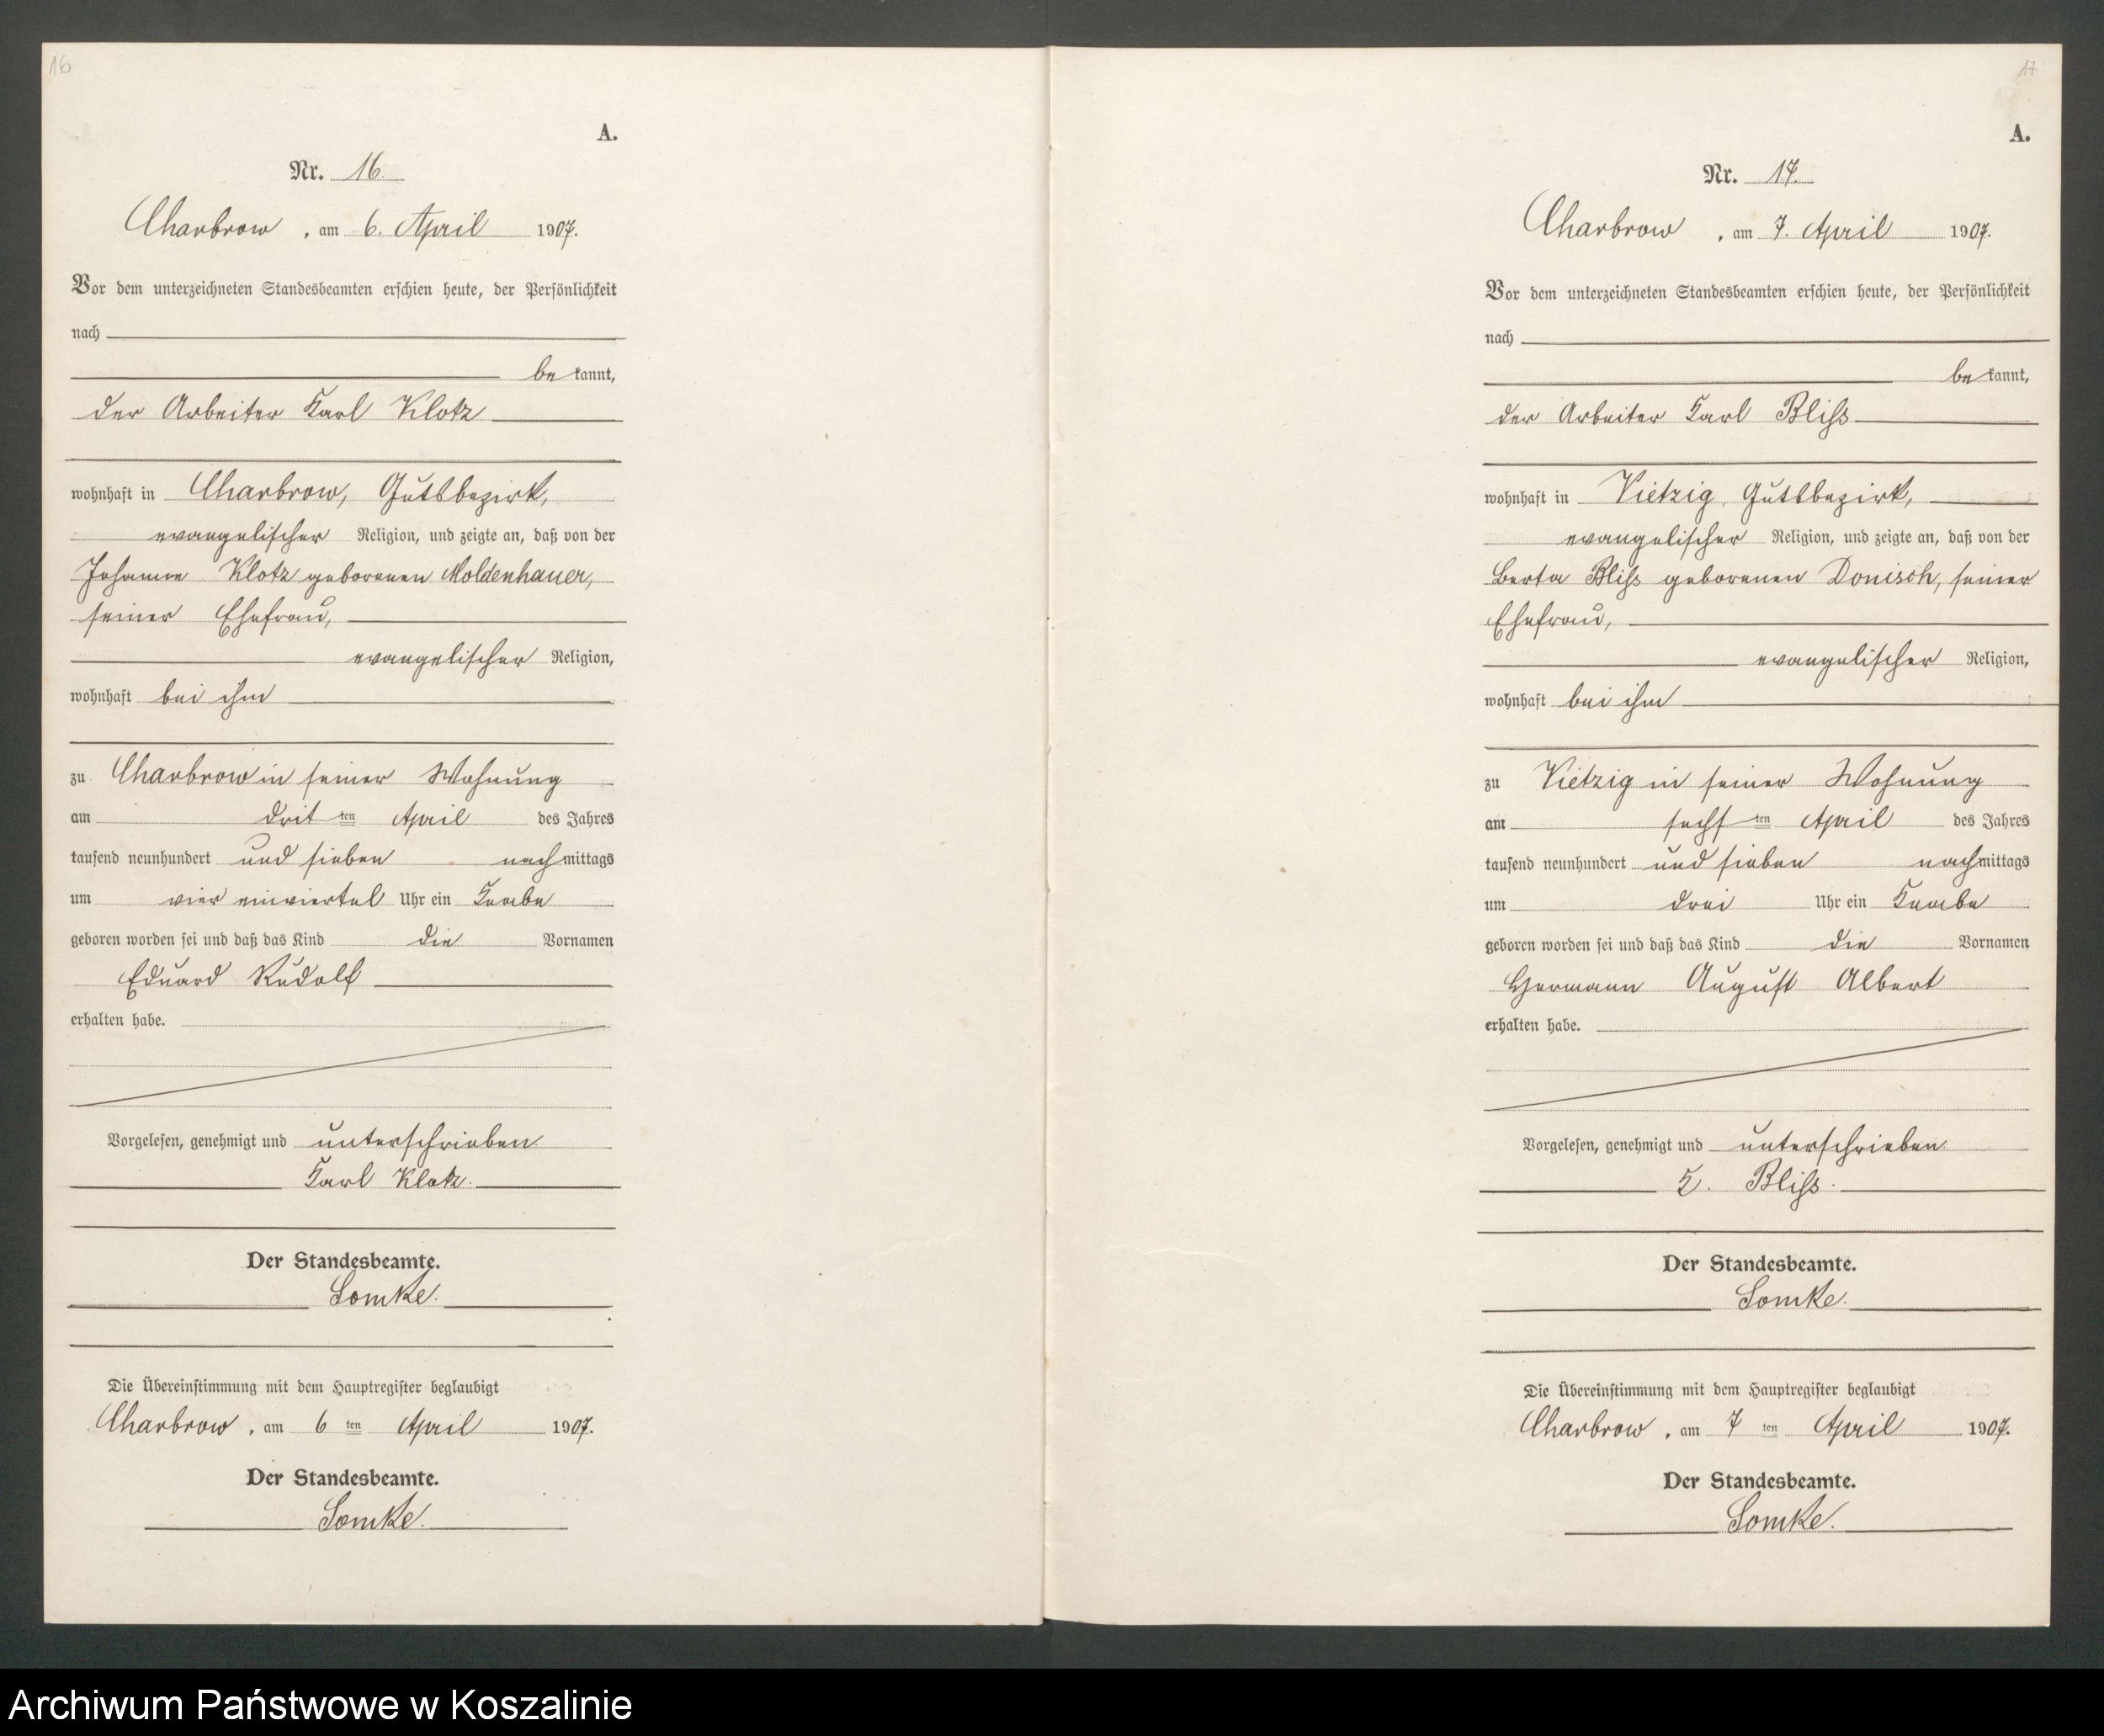 16
A.
Nr. 16.
Charbrow, am 6. April 1907.
Vor dem unterzeichneten Standesbeamten erschien heute, der Persönlichkeit
nach
be kannt,
der Arbeiter Karl Klotz
wohnhaft in Charbrow, Gutsbezirk,
evangelischer Religion, und zeigte an, daß von der
Johanne Klotz geborenen Moldenhauer,
seiner Ehefrau,
evangelischer Religion,
wohnhaft bei ihm
zu Charbrow in seiner Wohnung
am drit ten April des Jahres
tausend neunhundert und sieben nachmittags
um vier einviertel Uhr ein Knabe
geboren worden sei und daß das Kind die Vornamen
Eduard Rudolf
erhalten habe.
Vorgelesen, genehmigt und unterschrieben.
Karl Klotz.
Der Standesbeamte.
Lomke.
Die Übereinstimmung mit dem Hauptregister beglaubigt
Charbrow, am 6 ten April 1907.
Der Standesbeamte.
Lomke.
17
A.
Nr. 17.
Charbrow, am 7. April 1907.
Vor dem unterzeichneten Standesbeamten erschien heute, der Persönlichkeit
nach
be kannt,
der Arbeiter Karl Bliß
wohnhaft in Vietzig, Gutsbezirk,
evangelischer Religion, und zeigte an, daß von der
Berta Bliß geborenen Donisch, seiner
Ehefrau,
evangelischer Religion,
wohnhaft bei ihm
zu Vietzig in seiner Wohnung
am sechs ten April des Jahres
tausend neunhundert und sieben nachmittags
um drei Uhr ein Knabe
geboren worden sei und daß das Kind die Vornamen
Hermann August Albert
erhalten habe.
Vorgelesen, genehmigt und unterschrieben.
K. Bliß.
Der Standesbeamte.
Lomke.
Die Übereinstimmung mit dem Hauptregister beglaubigt
Charbrow, am 7 ten April 1907.
Der Standesbeamte.
Lomke.
Archiwum Państwowe w Koszalinie